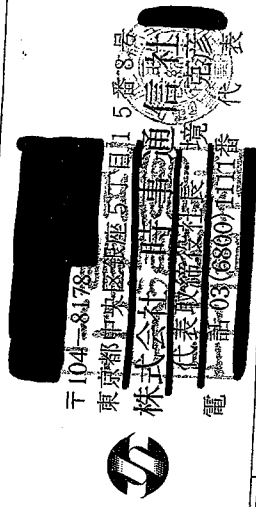 〒104-8178
東京都中央区銀座5丁目15番8号
株式会社 時事通信社
代表取締役社長 境
電話 03(6800)1111番 代表